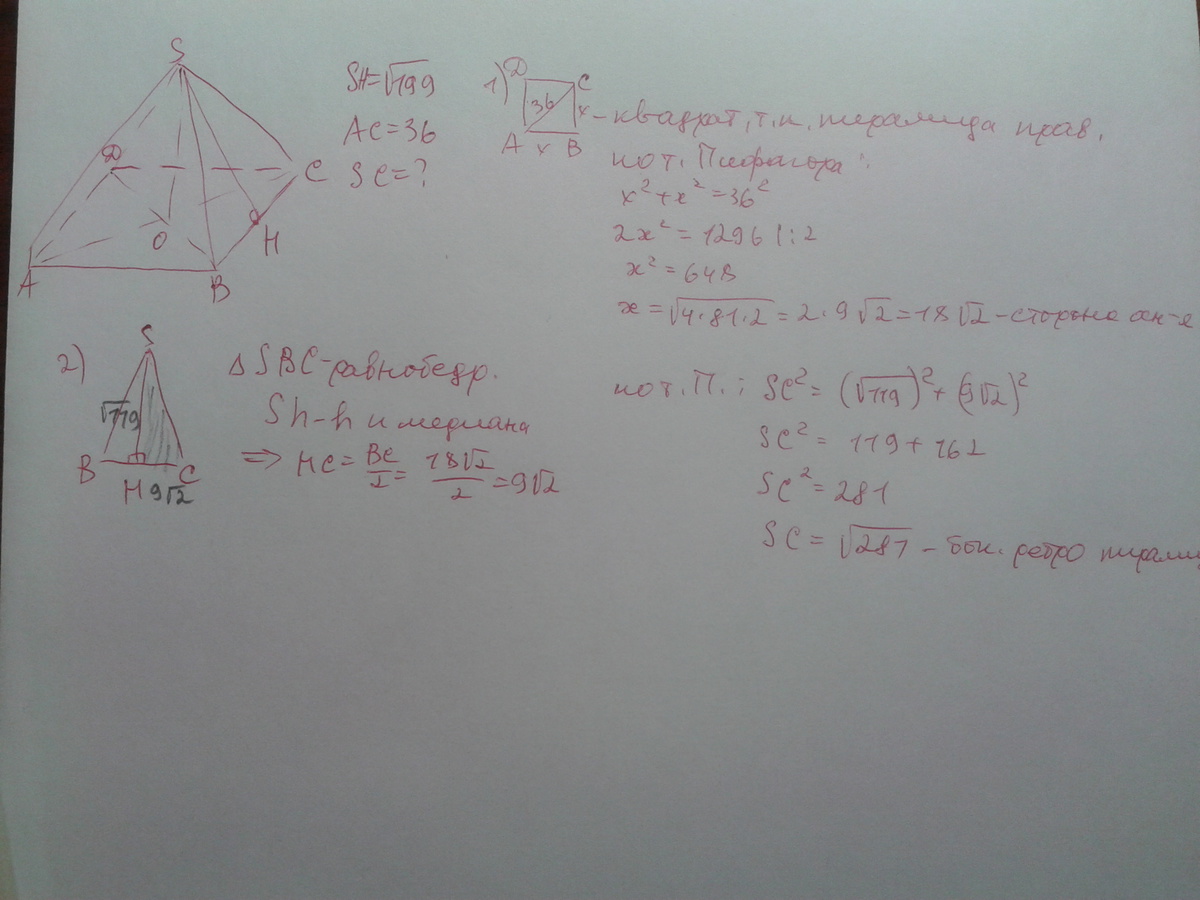 S
SH=√199
AC=36
SC=?
Д
C
O
H
A
B
1) Д C
36 x
A x B
- квадрат, т.к. пирамида прав.
по т. Пифагора:
x² + x² = 36²
2x² = 1296 |:2
x² = 648
x = √4·81·2 = 2·9√2 = 18√2 - сторона осн-я
2)
S
√119
B C
H 9√2
Δ SBC - равнобедр.
Sh - h и медиана
=> HC = BC/2 = 18√2/2 = 9√2
по т. П.: SC² = (√119)² + (9√2)²
SC² = 119 + 162
SC² = 281
SC = √281 - бок. ребро